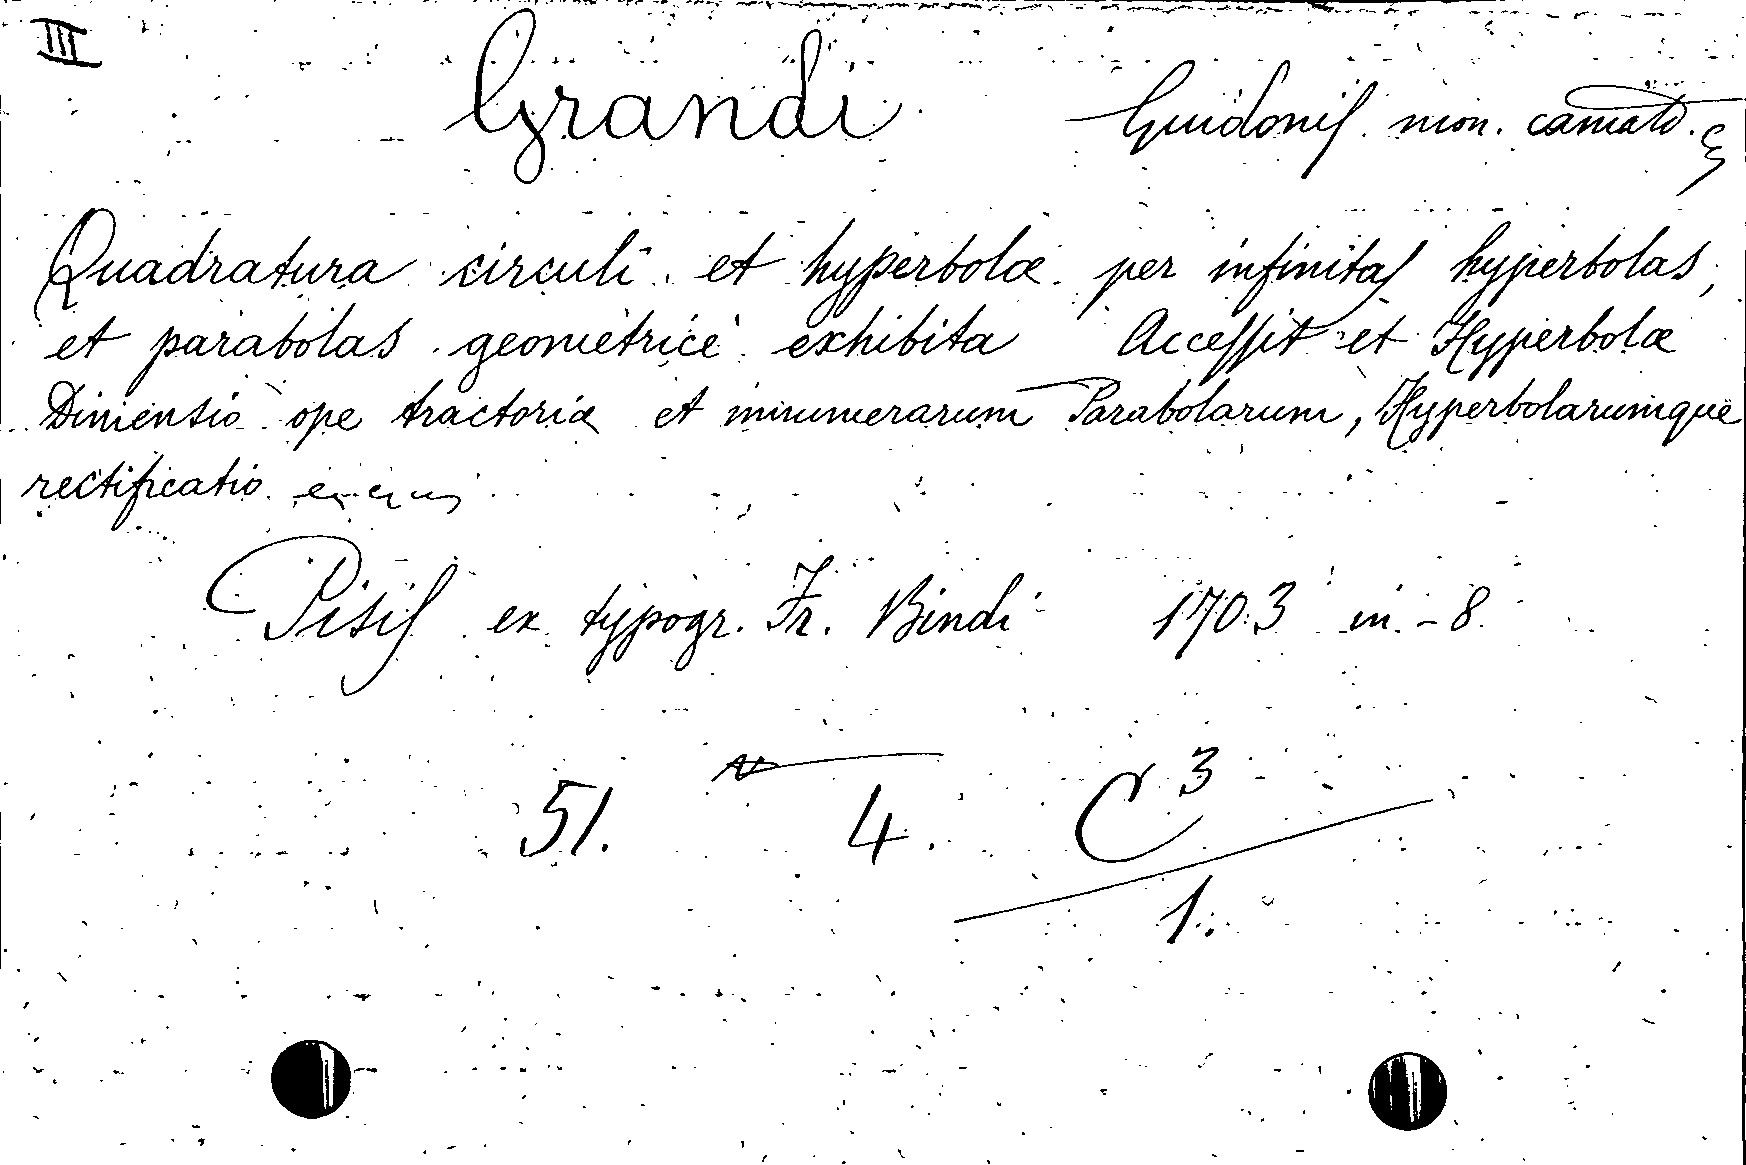 III
Grandi Guidonis mon. camald.
Quadratura circuli et hyperbolæ per infinitas hyperbolas,
et parabolas geometricè exhibita Accessit et Hyperbolæ
Dimensio ope tractoriæ et innumerarum Parabolarum, Hyperbolarumque
rectificatio
Pisis ex typogr. Fr. Bindi 1703 in-8.
51. 4. C 3
1.